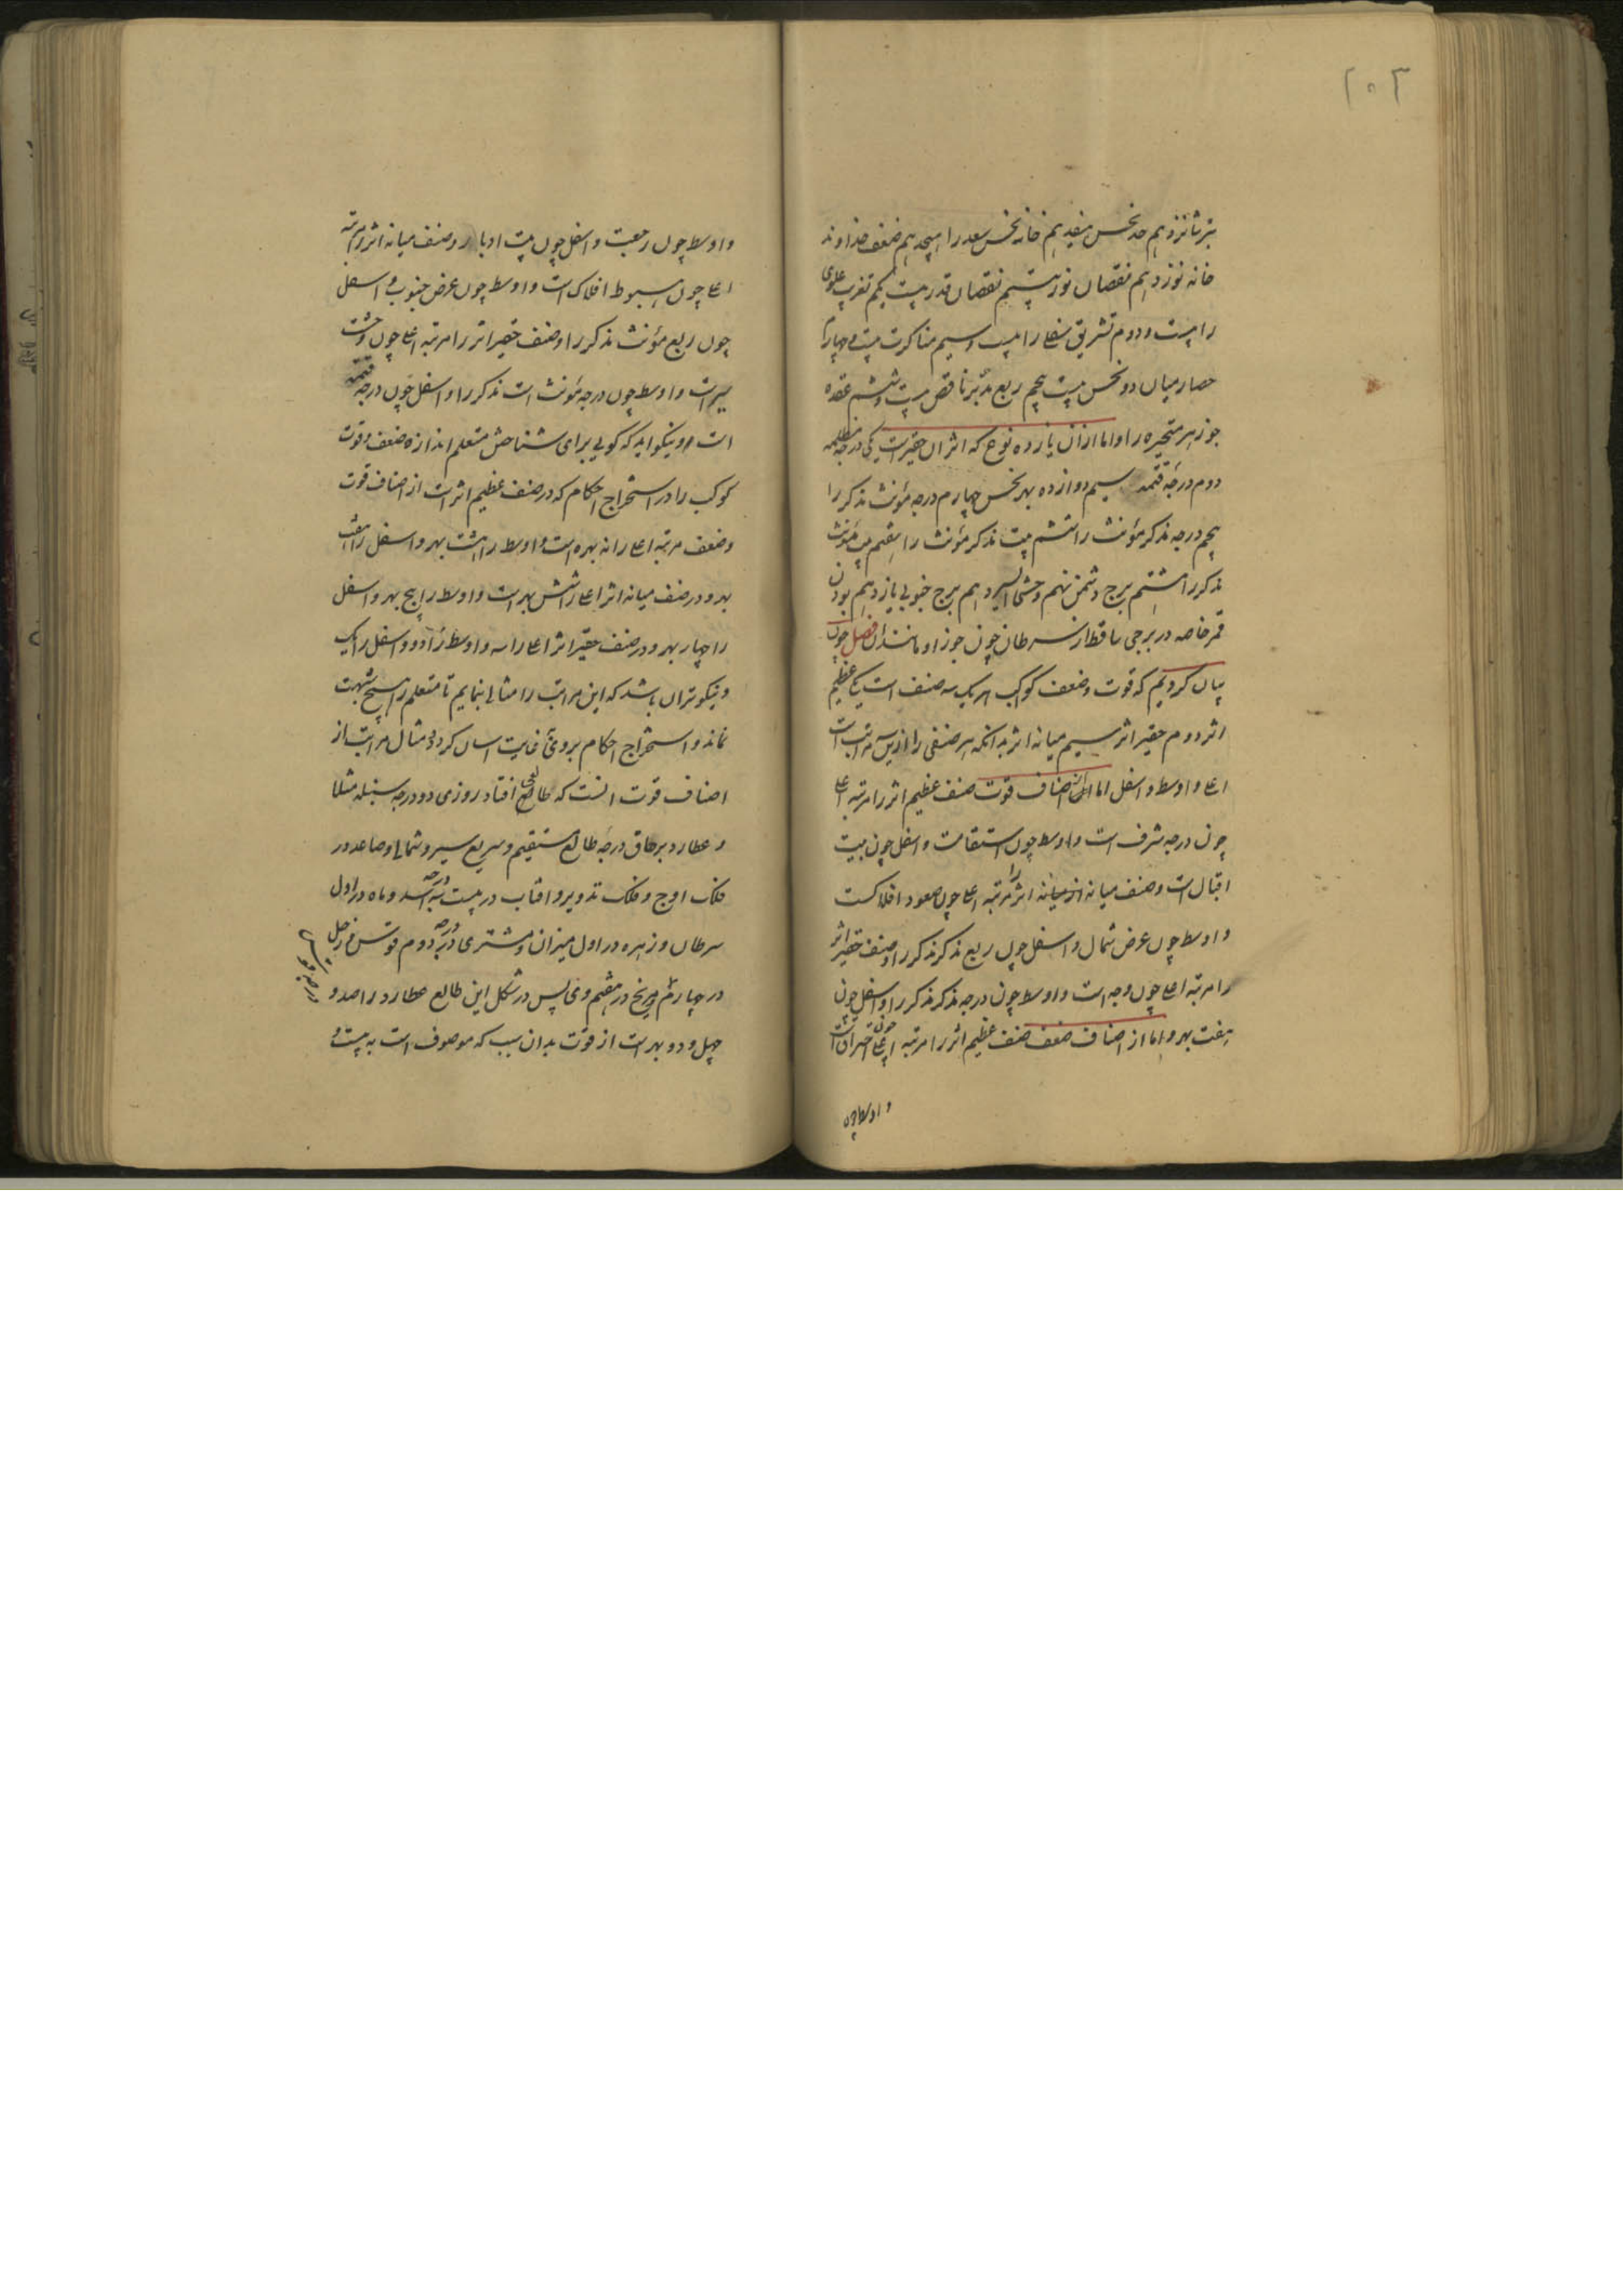 ۲۰۲
نیز شانزدهم حد نحس هفدهم خانه نحس سعد را هیجدهم ضعف خداوند
خانه نوزدهم نقصان نور بیستم نقصان قدر بیست یکم تغریب علوی
را بیست و دوم تشریق سفلی را بیست و سیم مناکرت بیست و چهارم
حصار میان دو نحس بیست پنجم ربع مدبر ناقص بیست و ششم عقده
جوزهر متحیره را و اما از ان یازده نوع که اثر ان حقیرست یکی درجه مظلمه
دوم درجه قتمه سیم دوازده بهر نحس چهارم درجه مؤنث مذکر را
پنجم درجه مذکر مؤنث را ششم بیت مذکر مؤنث را هفتم بیت مؤنث
مذکر را هشتم برج دشمن نهم وحشی السیر دهم برج جنوبی یازدهم بودن
قمر خاصه در برجی ساقط از سرطان چون جوزا و مانند ان فصل چون
بیان کردیم که قوت و ضعف کواکب هر یک سه صنف است یکی عظیم
اثر دوم حقیر اثر سیم میانه اثر بدانکه هر صنفی را ازین سه مراتب است
اعلی و اوسط و اسفل اما از اصناف قوت صنف عظیم اثر را مرتبه اعلی
چون درجه شرف است و اوسط چون استقامت و اسفل چون بیت
اقبال است و صنف میانه از میانه اثر را مرتبه اعلی چون صعود افلاکست
و اوسط چون عرض شمال و اسفل چون ربع مذکر مذکر را و صنف حقیر اثر
را مرتبه اعلی چون وجه است و اوسط چون درجه مذکر مذکر را و اسفل چون
هفت بهر و اما از اصناف ضعف صنف عظیم اثر را مرتبه اعلی چون احتراق است
و اوسط چون
و اوسط چون رجعت و اسفل چون بیت ادبار و صنف میانه اثر را مرتبه
اعلی چون هبوط افلاک است و اوسط چون عرض جنوب و اسفل
چون ربع مؤنث مذکر را و صنف حقیر اثر را مرتبه اعلی چون وحشت
سیر است و اوسط چون درجه مؤنث است مذکر را و اسفل چون درجه قتمه
است و نیکو اید که گویی برای شناختن متعلم اندازه ضعف و قوت
کوکب را در استخراج احکام که در صنف عظیم اثر است از اصناف قوت
و ضعف مرتبه اعلی را نه بهره است و اوسط را هشت بهر و اسفل را هفت
بهر و در صنف میانه اثر اعلی را شش بهر است و اوسط را پنج بهر و اسفل
را چهار بهر و در صنف حقیر اثر اعلی را سه و اوسط را دو و اسفل را یک
و نیکوتر ان باشد که این مراتب را مثالی بنمایم تا متعلم را هیچ شبهت
نماند و استخراج احکام بروی بغایت اسان گردد مثال مراتب از
اصناف قوت انست که طالعی افتاد روزی دو درجه سنبله مثلا
و عطارد بر طاق درجه طالع مستقیم و سریع سیر و شمالی و صاعد در
فلک اوج و فلک تدویر و افتاب در بیست درجه اسد و ماه در اول
سرطان و زهره در اول میزان و مشتری در درجه دوم قوس و زحل
در چهارم و مریخ در هفتم وی پس در شکل این طالع عطارد را صد و
چهل و دو بهر است از قوت بدان سبب که موصوف است به بیست و